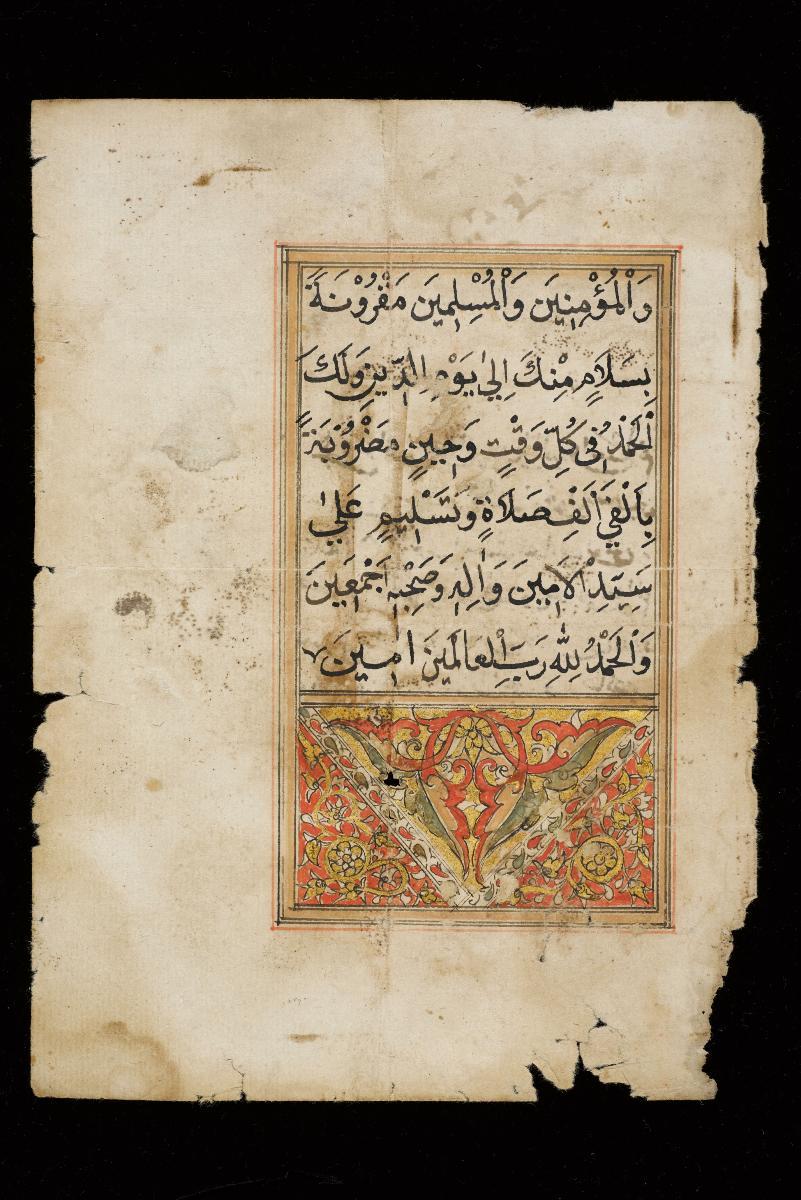 وَالْمُؤْمِنِيَن وَالْمُسْلِمِيَن مَقْرُوْنَةً
بِسَلَامٍ مِنْكَ اِلىٰ يَوْمِ الِدّيِنِ وَلَكَ
اْلحَمْدُ فِى كُلِّ وَقْتٍ وَحِيٍن مَضْرُوْبَةً
بِاَلْفَيْ اَلَفِ صَلَاةٍ وَتَسْلِيمٍ عَلىٰ
سَيِّدِ الْاَمِينَ وَاٰلِهِ وَصَحْبِهِ اَجْمَعِيَن
وَالْحَمْدُ لِلّٰهِ رَبِّ الْعَالَمِينَ اٰمِينَ